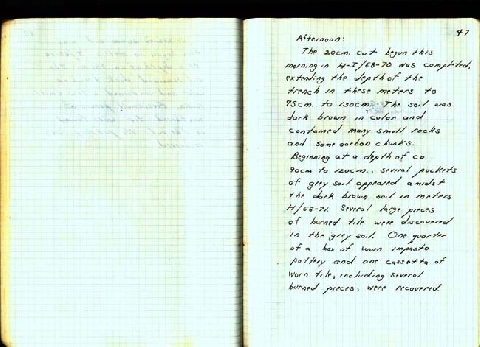 47
Afternoon:
The 20cm. cut begun this
morning in was completed,
extending the depth of the
trench in these meters to
95cm to 120cm. The soil was
dark brown in color and
contained many small rocks
and some carbon chunks.
Beginning at a depth of ca
90cm to 120cm., several pockets
of grey soil appeared amidst
the dark brown soil in meters
Several large pieces
of burned tile were discovered
in the grey soil. One quarter
of a box of worn impasto
pottery and one cassetta of
worn tile, including several
burned pieces, were recovered